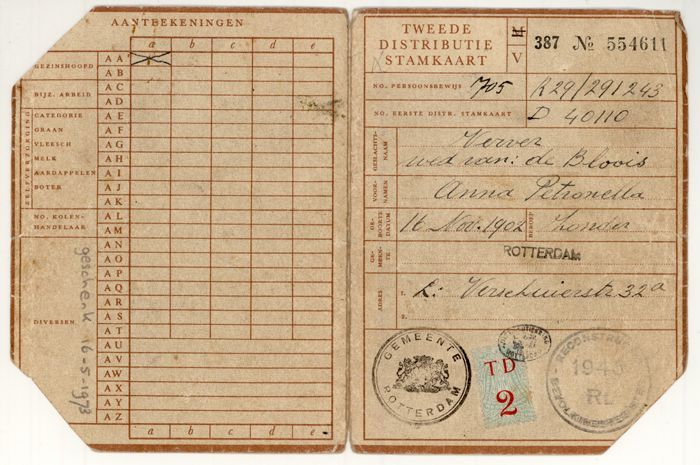 AANTEEKENINGEN
a b c d e
GEZINSHOOFD
AA
AB
BIJZ. ARBEID
AC
AD
ZELFVERZORGING
CATEGORIE AE
GRAAN AF
VLEESCH AG
MELK AH
AARDAPPELEN AI
BOTER AJ
AK
NO. KOLEN-
HANDELAAR
AL
AM
AN
AO
AP
AQ
AR
AS
DIVERSEN
AT
AU
AV
AW
AX
AY
AZ
a b c d e
geschenk 16-5-1973
TWEEDE
DISTRIBUTIE
STAMKAART
M
V
387 No 554611
NO. PERSOONSBEWIJS 705 R29/291243
NO. EERSTE DISTR. STAMKAART D 40110
GESLACHTS-
NAAM
Verver
wed van: de Bloois
VOOR-
NAMEN
Anna Petronella
GE-
BOORTE
DATUM
16 Nov. 1902
BEROEP
Zonder
GE-
MEEN-
TE
ROTTERDAM
ADRES
1. Verschuierstr 32a
2.
GEMEENTE
ROTTERDAM
TD
2
1945
BEVOLKINGS